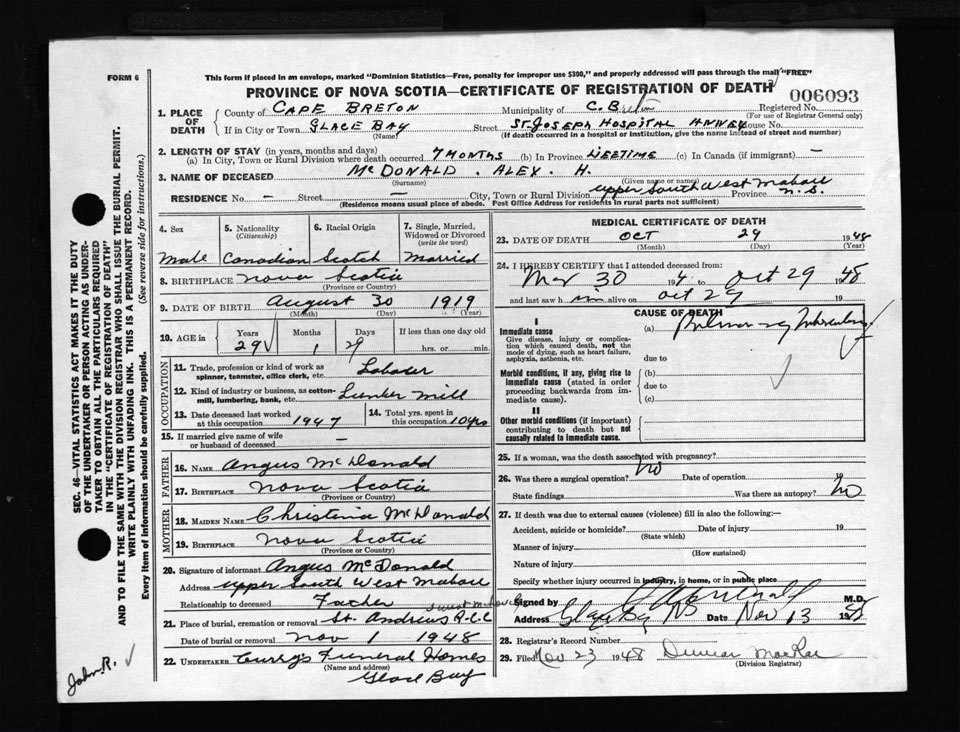 FORM 6
This form if placed in an envelope, marked "Dominion Statistics—Free, penalty for improper use $300," and properly addressed will pass through the mail "FREE"
PROVINCE OF NOVA SCOTIA—CERTIFICATE OF REGISTRATION OF DEATH
006093
1. PLACE OF DEATH County of CAPE BRETON Municipality of C. Breton Registered No.
(For use of Registrar General only)
If in City or Town GLACE BAY Street ST. JOSEPH HOSPITAL ANNEX House No.
(Name) (If death occurred in a hospital or institution, give the name instead of street and number)
2. LENGTH OF STAY (in years, months and days)
(a) In City, Town or Rural Division where death occurred 7 MONTHS (b) In Province LIFETIME (c) In Canada (if immigrant) —
3. NAME OF DECEASED McDONALD . ALEX . H.
(Surname) (Given name or names)
RESIDENCE No. — Street — City, Town or Rural Division upper South West Mabou Province N.S.
(Residence means usual place of abode. Post Office Address for residents in rural parts not sufficient)
4. Sex Male
5. Nationality (Citizenship) Canadian
6. Racial Origin Scotch
7. Single, Married, Widowed or Divorced (write the word) Married
8. BIRTHPLACE Nova Scotia
(Province or Country)
9. DATE OF BIRTH August 30 1919
(Month) (Day) (Year)
10. AGE in Years 29 Months 1 Days 29 If less than one day old hrs. or min.
OCCUPATION
11. Trade, profession or kind of work as spinner, teamster, office clerk, etc. Laborer
12. Kind of industry or business, as cotton-mill, lumbering, bank, etc. Lumber mill
13. Date deceased last worked at this occupation 1947
14. Total yrs. spent in this occupation 10 yrs
15. If married give name of wife or husband of deceased —
FATHER
16. NAME Angus McDonald
17. BIRTHPLACE Nova Scotia
(Province or Country)
MOTHER
18. MAIDEN NAME Christina McDonald
19. BIRTHPLACE Nova Scotia
(Province or Country)
20. Signature of informant Angus McDonald
Address upper South West Mabou
Relationship to deceased Father
21. Place of burial, cremation or removal St. Andrews R.C.C
Date of burial or removal Nov 1 1948
22. UNDERTAKER Curry's Funeral Homes
(Name and address)
Glace Bay
MEDICAL CERTIFICATE OF DEATH
23. DATE OF DEATH OCT 29 1948
(Month) (Day) (Year)
24. I HEREBY CERTIFY that I attended deceased from:
Mar 30 194 to Oct 29 1948
and last saw h im alive on Oct 29 19
CAUSE OF DEATH
I
Immediate cause
Give disease, injury or complication which caused death, not the mode of dying, such as heart failure, asphyxia, asthenia, etc.
(a) Pulmonary Tuberculosis
due to
Morbid conditions, if any, giving rise to immediate cause (stated in order proceeding backwards from immediate cause).
(b)
due to
(c)
II
Other morbid conditions (if important) contributing to death but not causally related to immediate cause.
25. If a woman, was the death associated with pregnancy?
26. Was there a surgical operation? No Date of operation 19
State findings Was there an autopsy? No
27. If death was due to external causes (violence) fill in also the following:—
Accident, suicide or homicide? Date of injury 19
(State which)
Manner of injury
(How sustained)
Nature of injury
Specify whether injury occurred in industry, in home, or in public place
Signed by M.D.
Address Glace Bay NS Date Nov 13 1948
28. Registrar's Record Number
29. Filed Nov 23 1948 Duncan MacRae
(Division Registrar)
SEC. 46—VITAL STATISTICS ACT MAKES IT THE DUTY
OF THE UNDERTAKER OR PERSON ACTING AS UNDERTAKER TO OBTAIN ALL THE PARTICULARS REQUIRED
IN THE "CERTIFICATE OF REGISTRATION OF DEATH"
AND TO FILE THE SAME WITH THE DIVISION REGISTRAR WHO SHALL ISSUE THE BURIAL PERMIT.
WRITE PLAINLY WITH UNFADING INK. THIS IS A PERMANENT RECORD.
Every item of information should be carefully supplied. (See reverse side for instructions.)
John R.